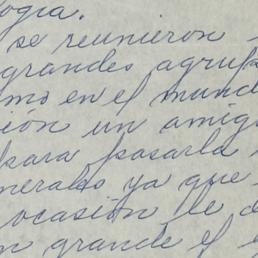 logia.
se reunieron
grandes agrup
mo en el mund
ión un amig
para pasarla
nerales ya que
ocasión le d
n grande el e